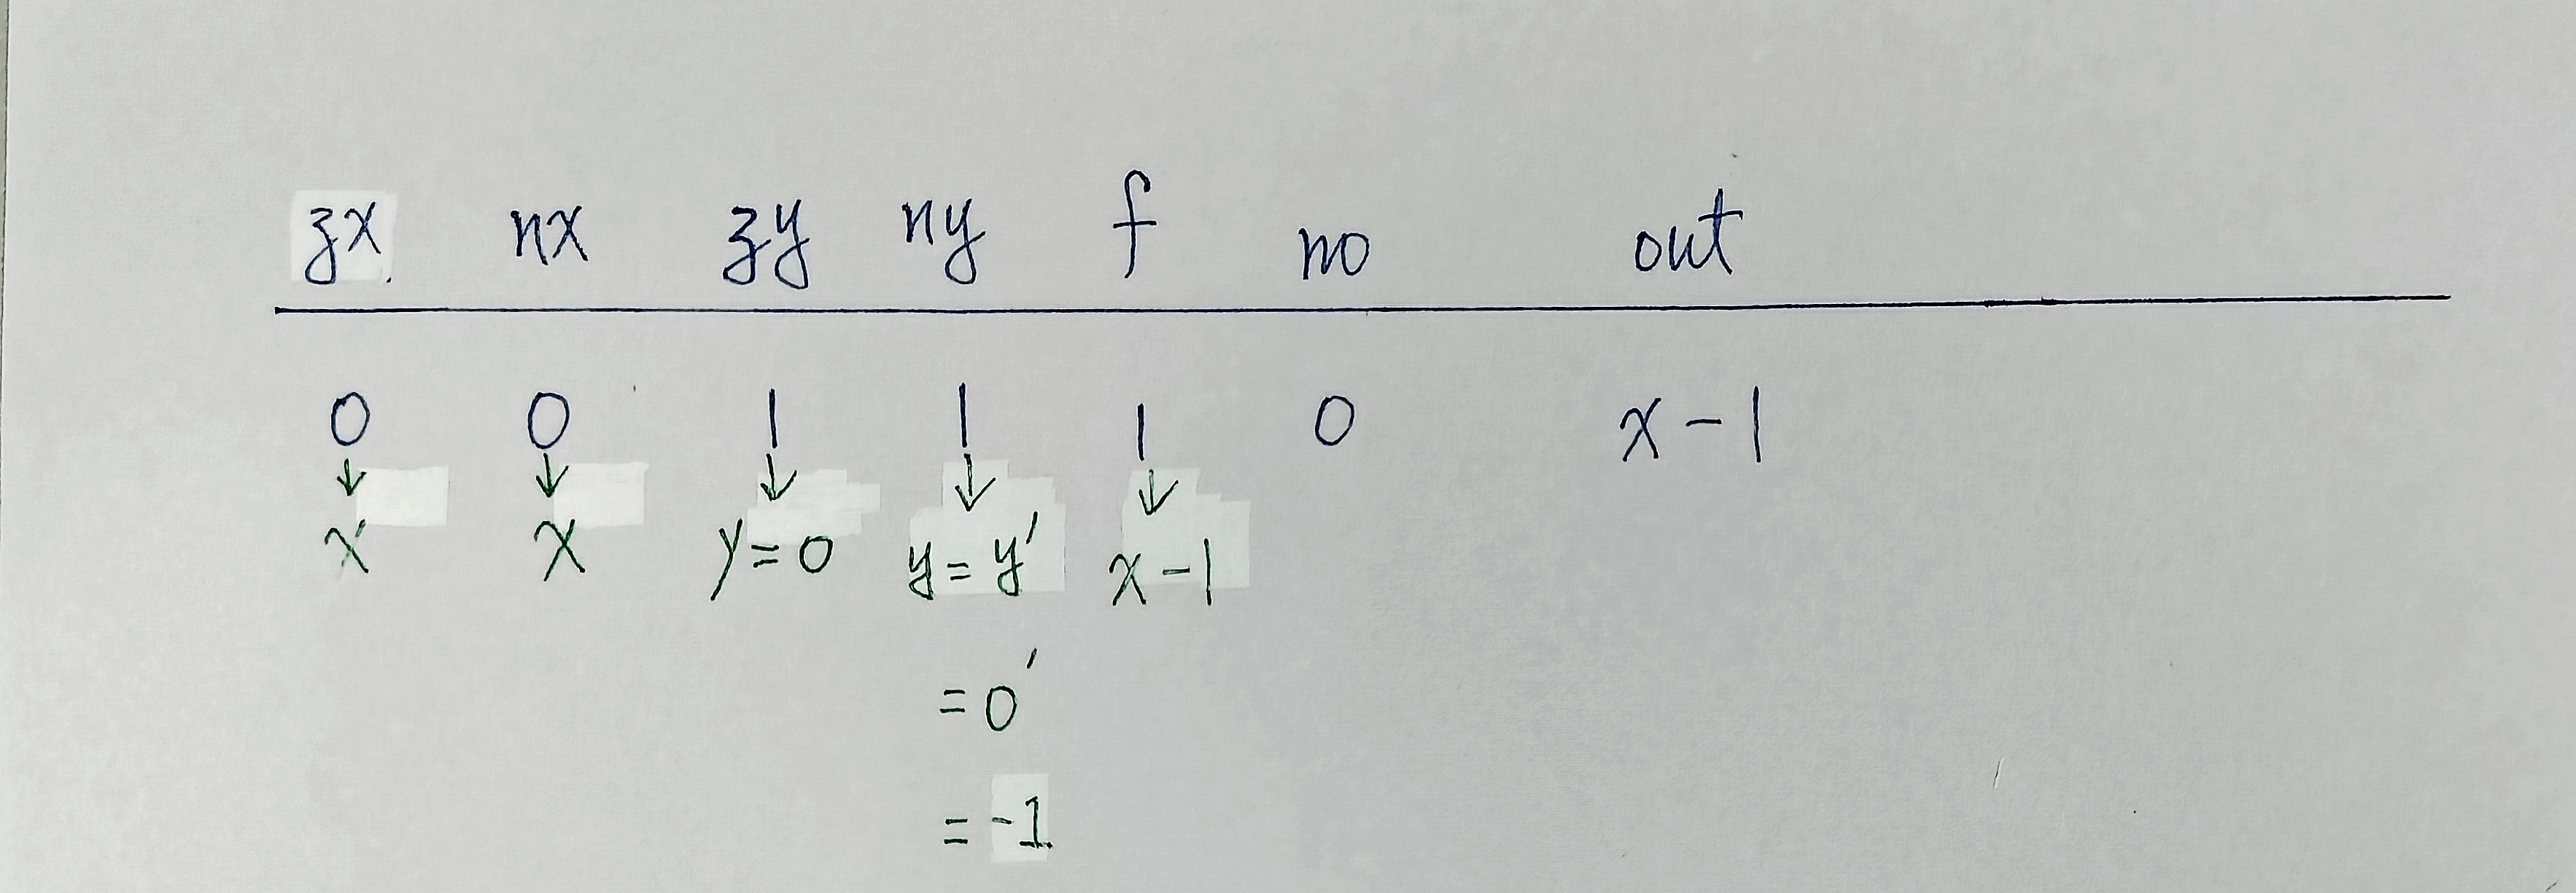 zx nx zy ny f no out
0 0 1 1 1 0 x-1
↓ ↓ ↓ ↓ ↓
x x y=0 y=y' x-1
=0'
=-1